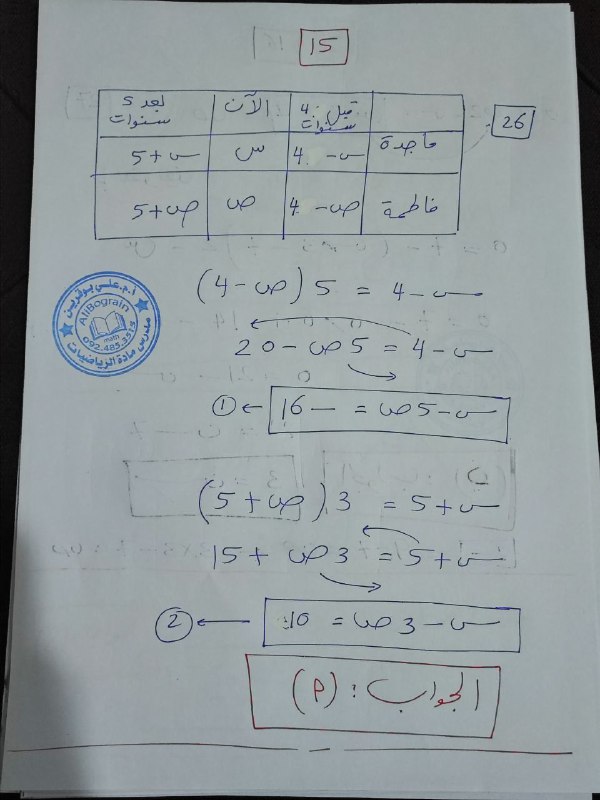 15
26
قبل 4 سنوات | الآن | بعد 5 سنوات
ماجدة | س - 4 | س | س + 5
فاطمة | ص - 4 | ص | ص + 5
س - 4 = 5 (ص - 4)
س - 4 = 5ص - 20
س - 5ص = - 16 ← ①
س + 5 = 3 (ص + 5)
س + 5 = 3ص + 15
س - 3ص = 10 ← ②
الجواب : (م)
أ.م.علي بوقرين
AliBograin
math
092.485.3513
مدرس مادة الرياضيات